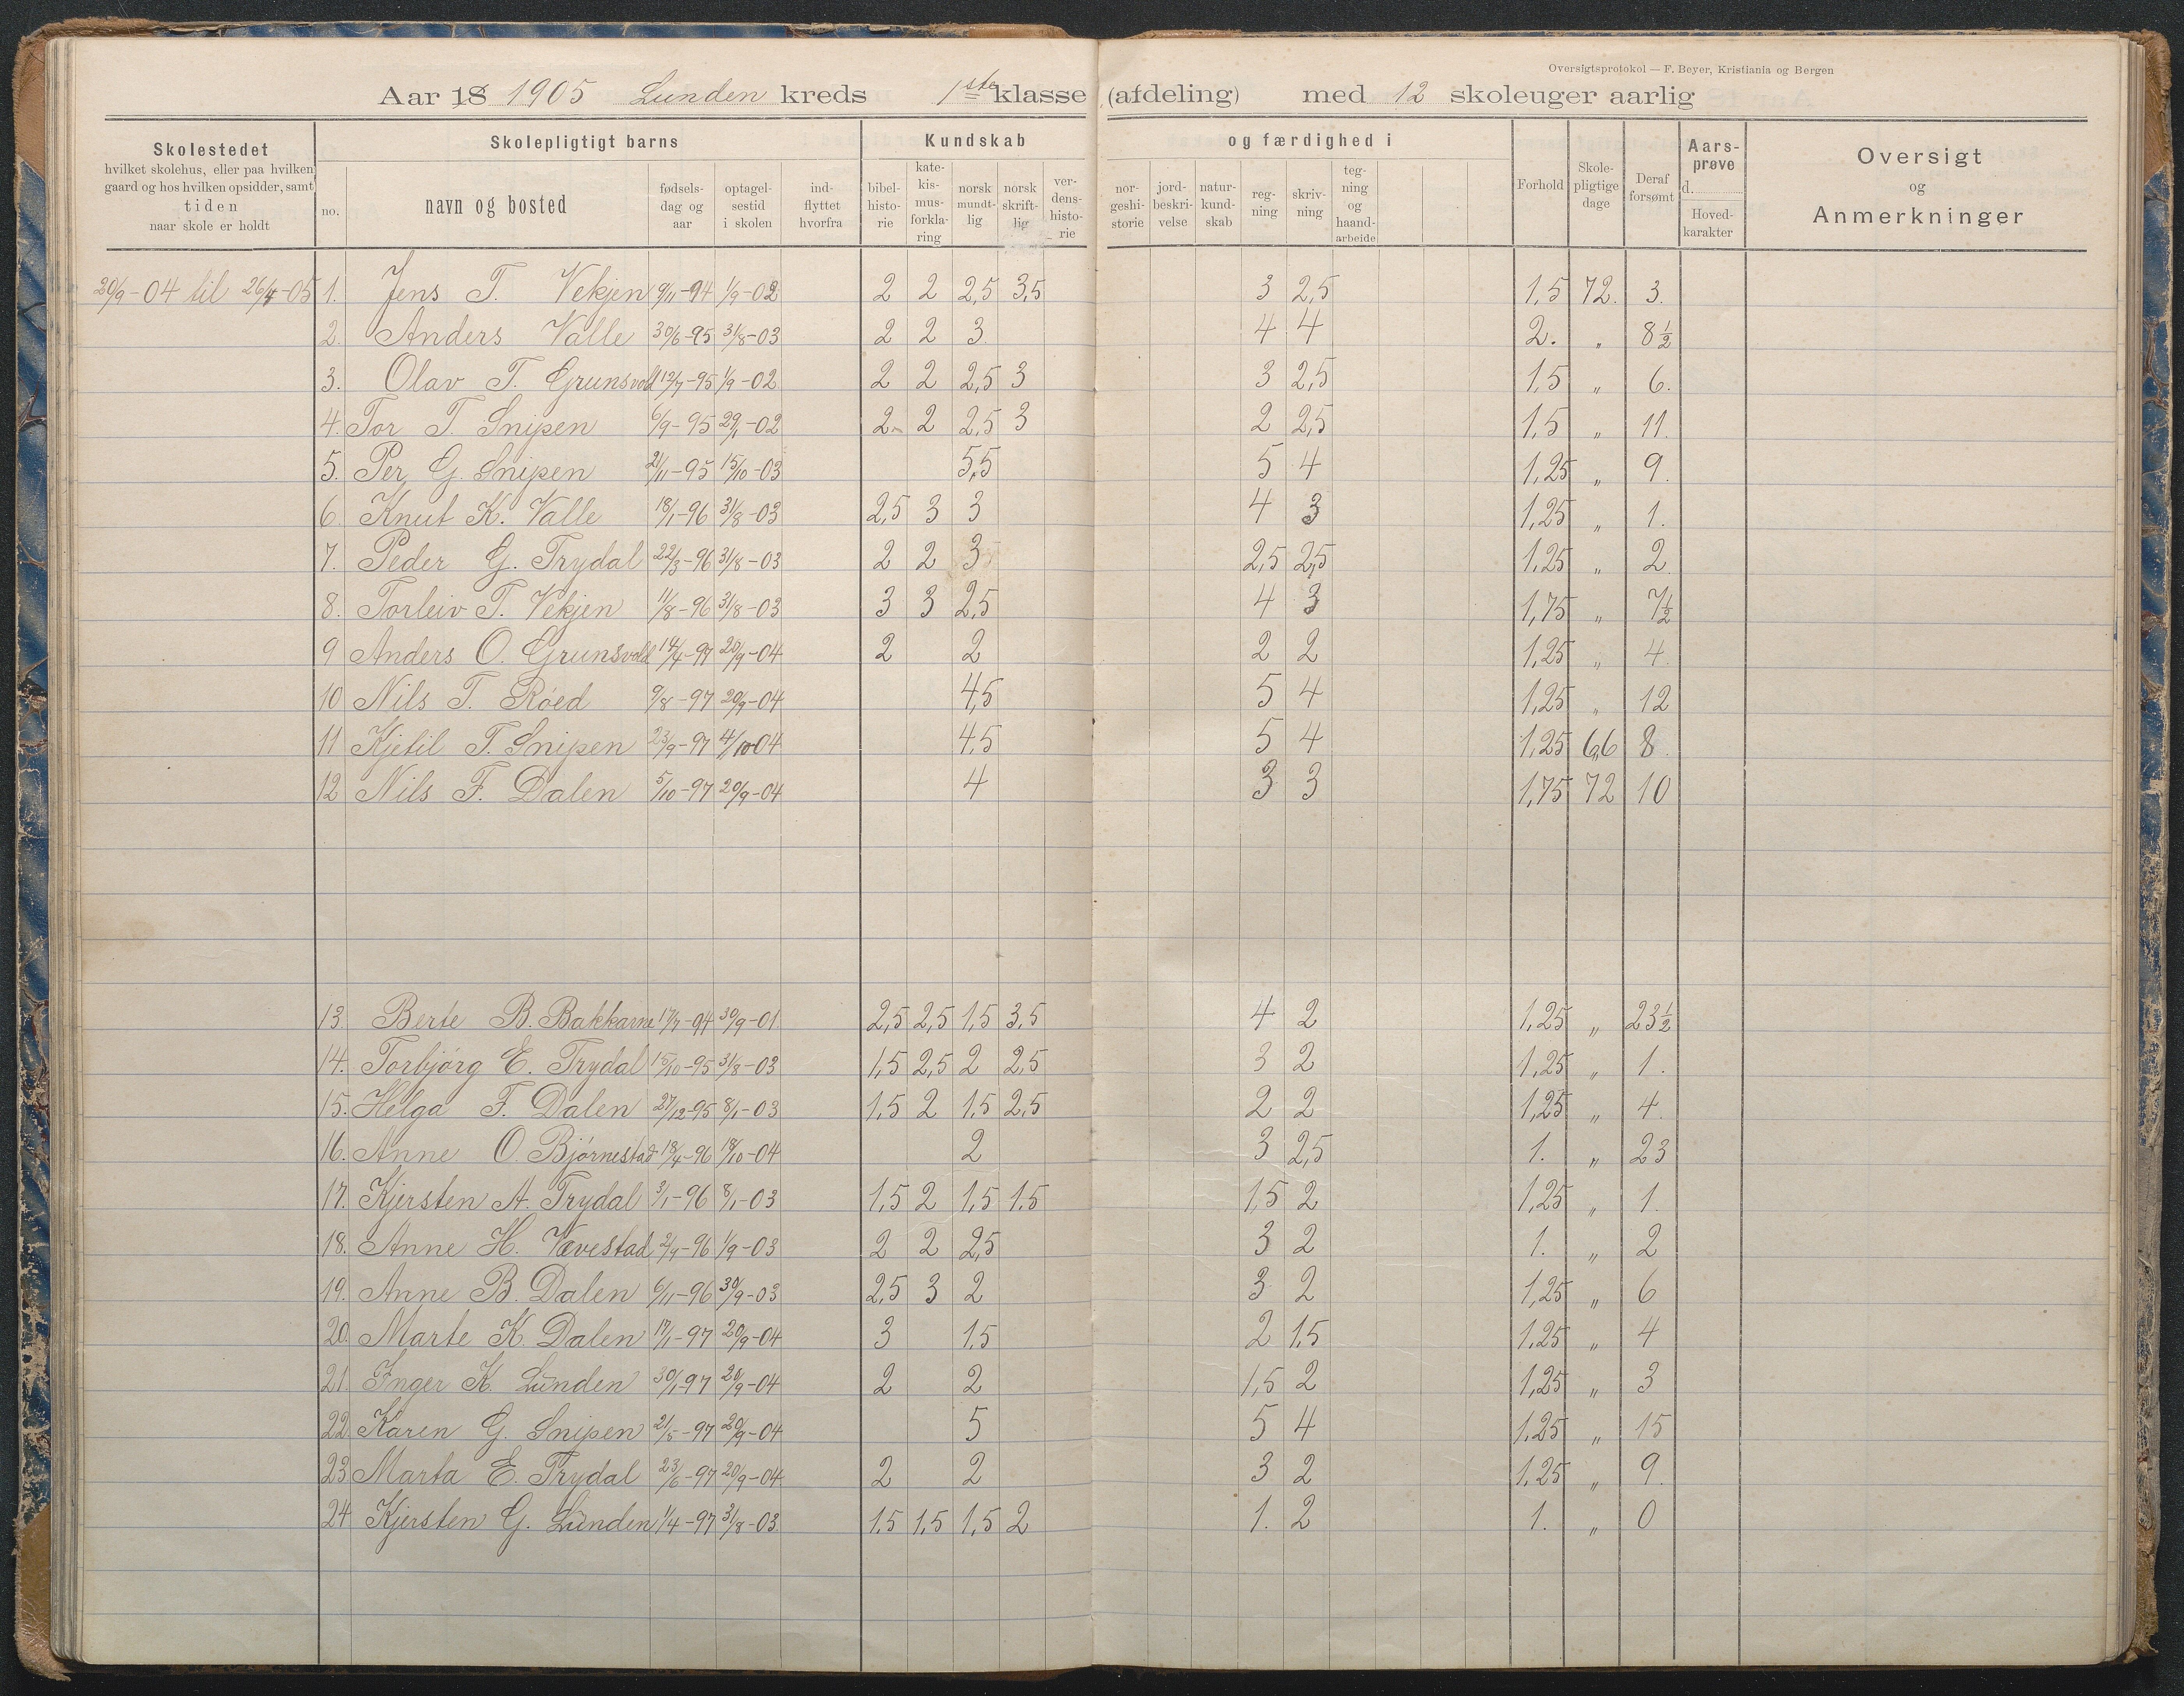 Oversigtsprotokol — F. Beyer, Kristiania og Bergen
Aar 18 1905 Lunden kreds 1ste klasse (afdeling) med 12 skoleuger aarlig
Skolestedet
hvilket skolehus, eller paa hvilken
gaard og hos hvilken opsidder, samt
tiden
naar skole er holdt
Skolepligtigt barns
no.
navn og bosted
fødsels-
dag og
aar
optagel-
sestid
i skolen
ind-
flyttet
hvorfra
Kundskab
bibel-
histo-
rie
kate-
kis-
mus-
forkla-
ring
norsk
mundt-
lig
norsk
skrift-
lig
ver-
dens-
histo-
rie
og færdighed i
nor-
geshi-
storie
jord-
beskri-
velse
natur-
kund-
skab
reg-
ning
skriv-
ning
teg-
ning
og
haand-
arbeide
Forhold
Skole-
pligtige
dage
Deraf
forsømt
Aars-
prøve
d.
Hoved-
karakter
Oversigt
og
Anmerkninger
20/9-04 til 26/4-05 1. Jens T. Vekjen 9/11-94 1/9-02 2 2 2,5 3,5 3 2,5 1,5 72. 3.
2. Anders Valle 30/6-95 31/8-03 2 2 3 4 4 2. " 8½
3. Olav T. Grunsvold 12/7-95 1/9-02 2 2 2,5 3 3 2,5 1,5 " 6.
4. Tor T. Snipen 6/9-95 29/1-02 2 2 2,5 3 2 2,5 1,5 " 11.
5. Per G. Snipen 21/11-95 15/10-03 5,5 5 4 1,25 " 9.
6. Knut K. Valle 18/1-96 31/8-03 2,5 3 3 4 3 1,25 " 1.
7. Peder G. Trydal 22/3-96 31/8-03 2 2 3 2,5 2,5 1,25 " 2
8. Torleiv T. Vekjen 11/8-96 31/8-03 3 3 2,5 4 3 1,75 " 7½
9 Anders O. Grunsvold 14/4-97 20/9-04 2 2 2 2 1,25 " 4.
10 Nils T. Røed 9/8-97 20/9-04 4,5 5 4 1,25 " 12
11 Kjetil T. Snipen 23/9-97 4/10-04 4,5 5 4 1,25 66 8.
12 Nils F. Dalen 5/10-97 20/9-04 4 3 3 1,75 72 10
13. Berte B. Bakkarne 17/7-94 30/9-01 2,5 2,5 1,5 3,5 4 2 1,25 " 23½
14. Torbjørg E. Trydal 15/10-95 31/8-03 1,5 2,5 2 2,5 3 2 1,25 " 1.
15. Helga F. Dalen 27/12-95 8/1-03 1,5 2 1,5 2,5 2 2 1,25 " 4.
16. Anne O. Bjørnestad 18/4-96 18/10-04 2 3 2,5 1. " 23
17. Kjersten A. Trydal 3/1-96 8/1-03 1,5 2 1,5 1,5 1,5 2 1,25 " 1.
18. Anne H. Vævestad 2/9-96 1/9-03 2 2 2,5 3 2 1. " 2
19. Anne B. Dalen 6/11-96 30/9-03 2,5 3 2 3 2 1,25 " 6
20. Marte K. Dalen 17/1-97 20/9-04 3 1,5 2 1,5 1,25 " 4
21. Inger K. Lunden 30/1-97 20/9-04 2 2 1,5 2 1,25 " 3
22. Karen G. Snipen 21/5-97 20/9-04 5 5 4 1,25 " 15
23 Marta E. Trydal 23/6-97 20/9-04 2 2 3 2 1,25 " 9.
24 Kjersten G. Lunden 1/4-97 31/8-03 1,5 1,5 1,5 2 1. 2 1. " 0